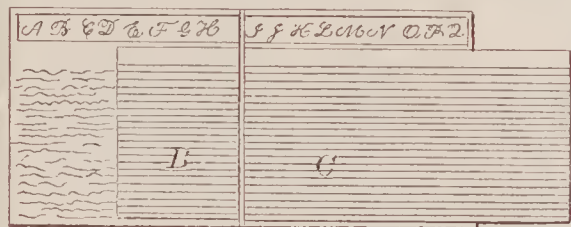 A B C D E F G H I J K L M N O P Q
B C